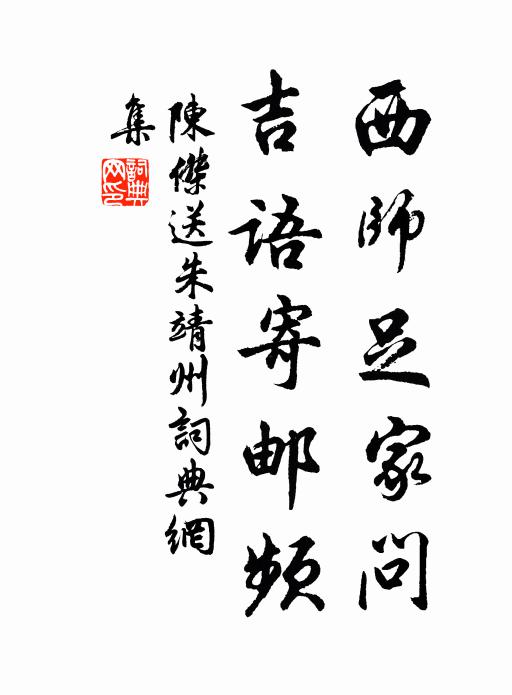 西師足家問
吉語寄邮頻
陳傑送朱靖州詞典網
集
詞典网印